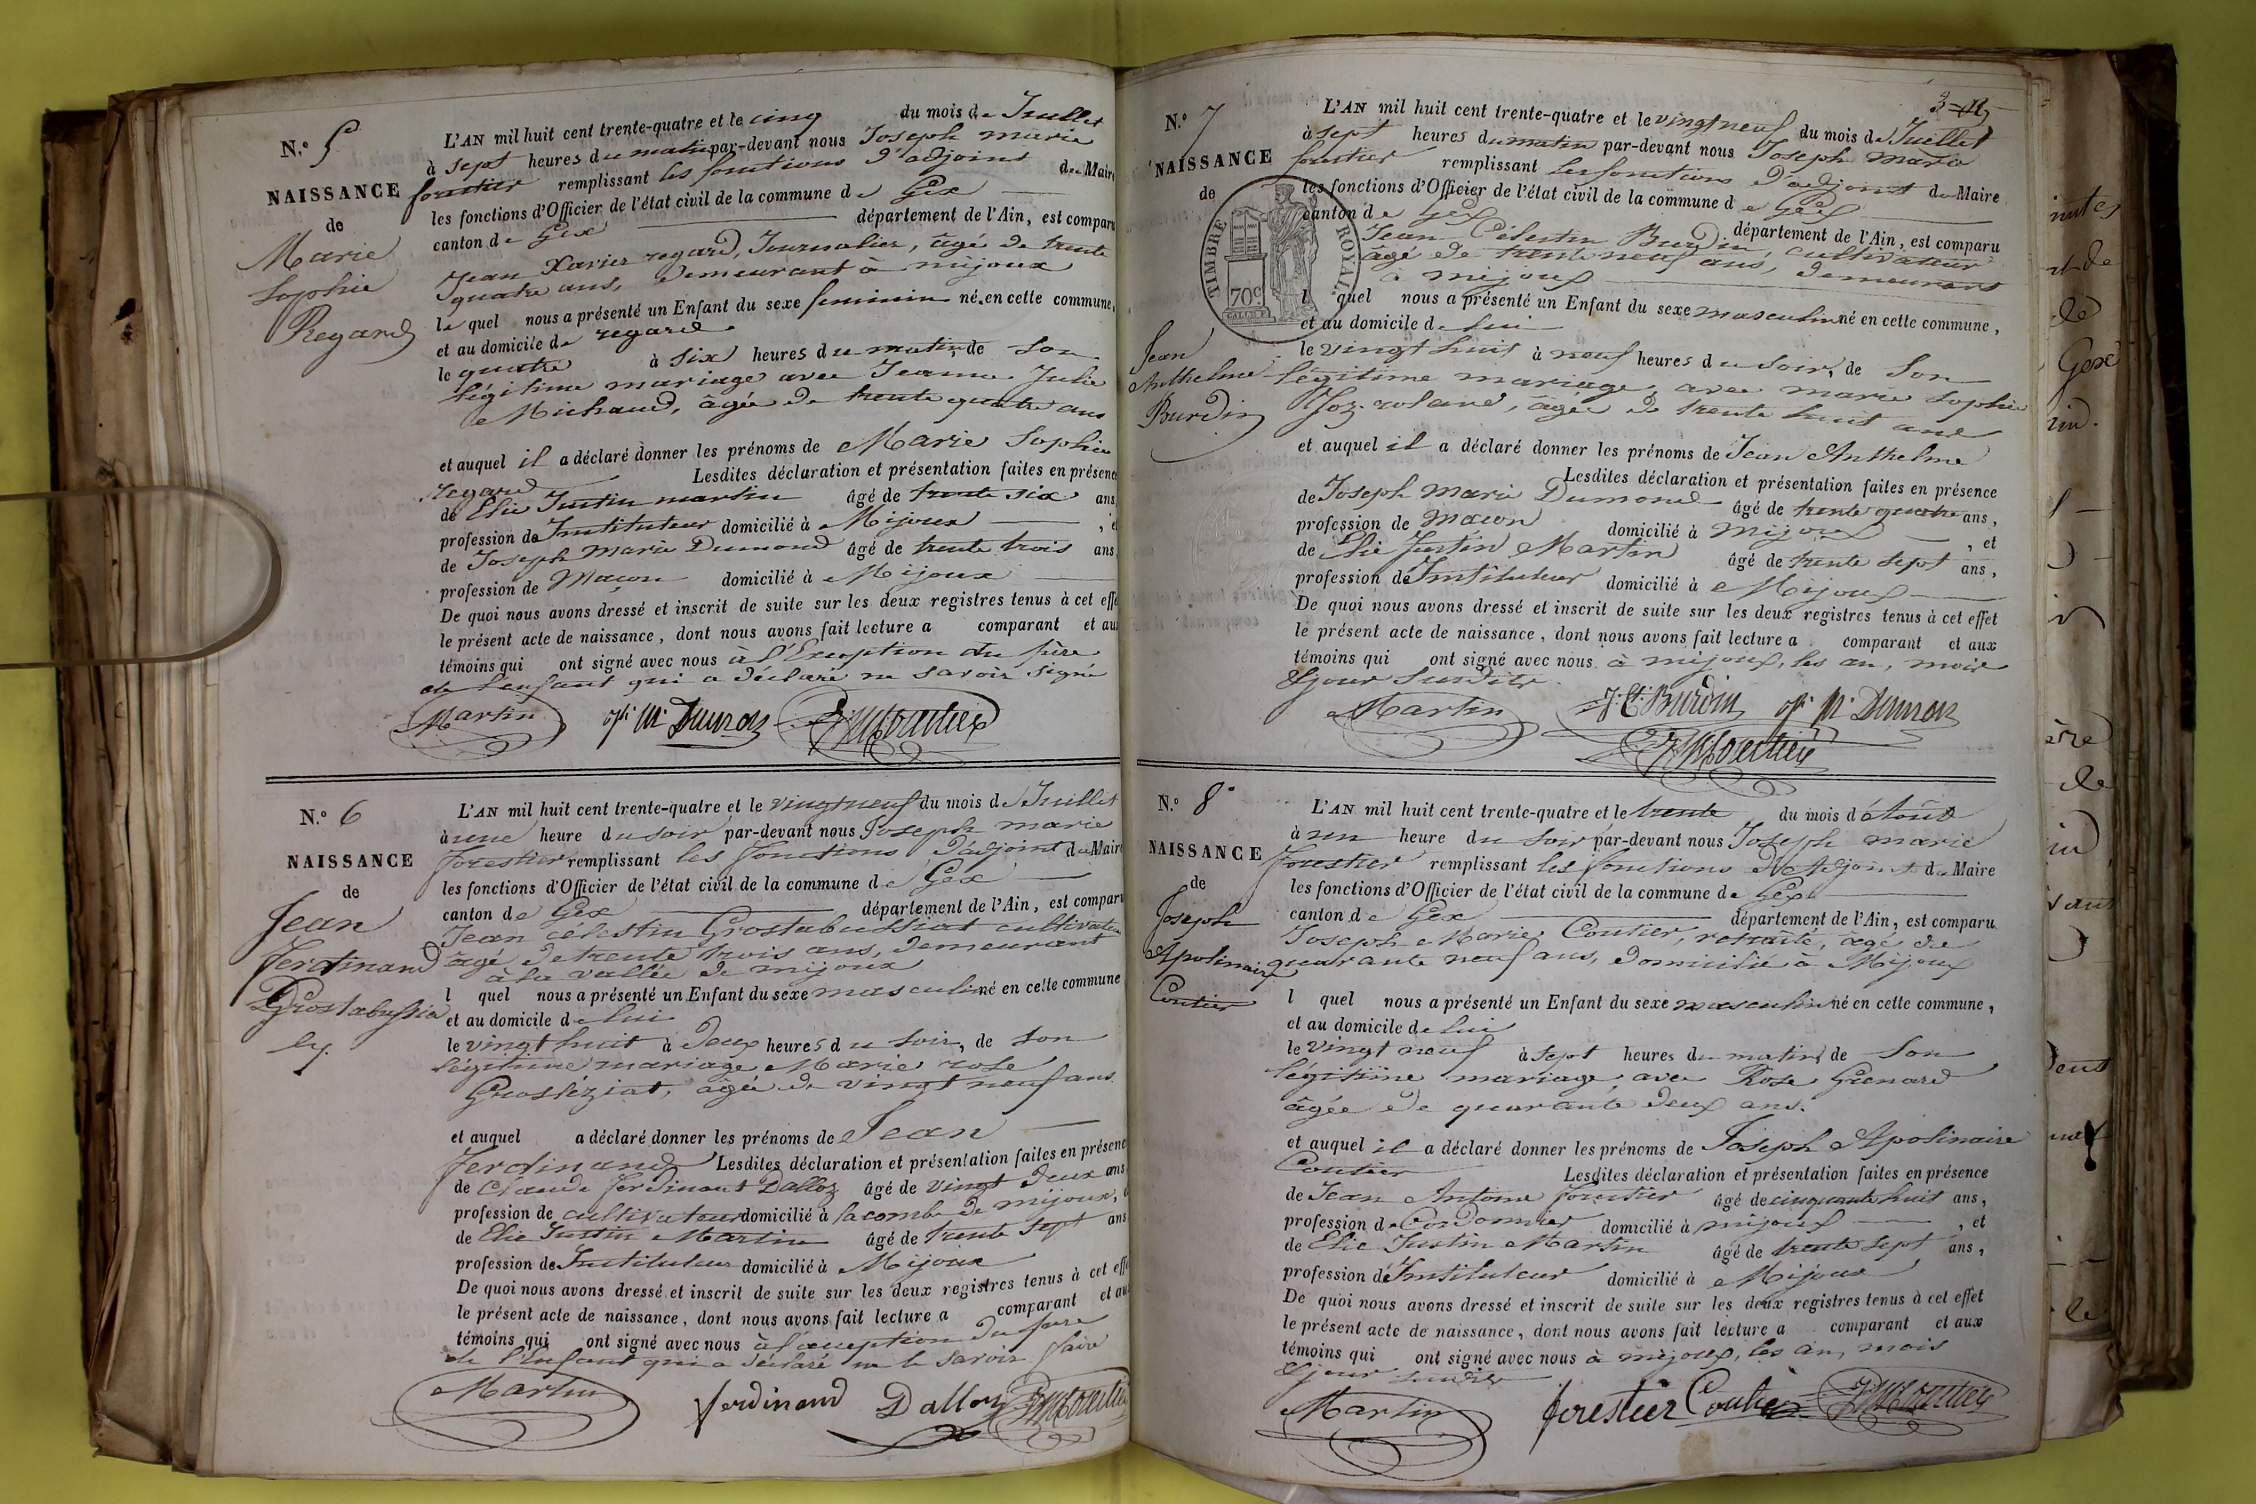 N.° 5
NAISSANCE
de
Marie
Sophie
Regard
L'AN mil huit cent trente-quatre et le cinq du mois de Juillet
à sept heures du matin par-devant nous Joseph marie
forestier remplissant les fonctions d'adjoint du Maire
les fonctions d'Officier de l'état civil de la commune de Gex
canton de Gex département de l'Ain, est comparu
Jean Xavier regard, Journalier, âgé de trente
quatre ans, demeurant à mijoux
le quel nous a présenté un Enfant du sexe feminin né en cette commune,
et au domicile de regard
le quatre à six heures du matin, de son
légitime mariage avec Jeanne Julie
Michaud, âgée de trente quatre ans
et auquel il a déclaré donner les prénoms de Marie Sophie
regard Lesdites déclaration et présentation faites en présence
de Elie Justin martin âgé de trente six ans
profession de Instituteur domicilié à Mijoux , et
de Joseph Marie Dumond âgé de trente trois ans
profession de Maçon domicilié à Mijoux
De quoi nous avons dressé et inscrit de suite sur les deux registres tenus à cet effe
le présent acte de naissance, dont nous avons fait lecture a comparant et au
témoins qui ont signé avec nous à l'Exception du père
de l'enfant qui a déclaré ne savoir signé
Martin Jh M Dumon JMForestier
N.° 6
NAISSANCE
de
Jean
Ferdinand
Grostabussia
ty.
L'AN mil huit cent trente-quatre et le vingt neuf du mois de Juillet
à une heure du soir par-devant nous Joseph marie
forestier remplissant les fonctions d'adjoint du Maire
les fonctions d'Officier de l'état civil de la commune de Gex
canton de Gex département de l'Ain, est comparu
Jean célestin Grostabussiat cultivateur
âgé de trente trois ans, demeurant
à la vallée de mijoux
l quel nous a présenté un Enfant du sexe masculin né en cette commune
et au domicile de lui
le vingt huit à deux heures du soir, de son
légitime mariage Marie rose
Grosléziat, âgée de vingt neuf ans
et auquel a déclaré donner les prénoms de Jean
Ferdinand Lesdites déclaration et présentation faites en présence
de Claude ferdinant Dalloz âgé de vingt deux ans
profession de cultivateur domicilié à la combe de mijoux,
de Elie Justin Martin âgé de trente sept ans
profession de Instituteur domicilié à Mijoux
De quoi nous avons dressé et inscrit de suite sur les deux registres tenus à cet effe
le présent acte de naissance, dont nous avons fait lecture a comparant et au
témoins qui ont signé avec nous à l'exception du père
de l'Enfant qui a déclaré ne le savoir faire
Martin ferdinand Dalloz JMForestier
N.° 7
NAISSANCE
de
TIMBRE ROYAL
70c
Jean
Anthelme
Burdin
L'AN mil huit cent trente-quatre et le vingt neuf du mois de Juillet
à sept heures du matin par-devant nous Joseph marie
forestier remplissant les fonctions d'adjoint du Maire
les fonctions d'Officier de l'état civil de la commune de Gex
canton de Gex département de l'Ain, est comparu
Jean Célestin Burdin, cultivateur
âgé de trente neuf ans, demeurant
à mijoux
l quel nous a présenté un Enfant du sexe masculin né en cette commune,
et au domicile de lui
le vingt huit à neuf heures du soir, de son
légitime mariage, avec marie Sophie
roland, âgée de trente huit ans
et auquel il a déclaré donner les prénoms de Jean Anthelme
Lesdites déclaration et présentation faites en présence
de Joseph Marie Dumond âgé de trente quatre ans,
profession de macon domicilié à mijoux , et
de Elie Justin Martin âgé de trente sept ans,
profession de Instituteur domicilié à Mijoux
De quoi nous avons dressé et inscrit de suite sur les deux registres tenus à cet effet
le présent acte de naissance, dont nous avons fait lecture a comparant et aux
témoins qui ont signé avec nous à mijoux, les an, mois
& jour susdits
Martin J. C. Burdin Jh M Dumon
JMForestier
N.° 8
NAISSANCE
de
Joseph
Apolinaire
Coutier
L'AN mil huit cent trente-quatre et le trente du mois d'Août
à un heure du soir par-devant nous Joseph marie
forestier remplissant les fonctions d'Adjoint du Maire
les fonctions d'Officier de l'état civil de la commune de Gex
canton de Gex département de l'Ain, est comparu
Joseph Marie Coutier, retraité, âgé de
quarante neuf ans, domicilié à Mijoux
l quel nous a présenté un Enfant du sexe masculin né en cette commune,
et au domicile de lui
le vingt neuf à sept heures du matin, de son
légitime mariage, avec Rose Grenard
âgée de quarante deux ans.
et auquel il a déclaré donner les prénoms de Joseph Apolinaire
Coutier Lesdites déclaration et présentation faites en présence
de Jean Antoine forestier âgé de cinquante huit ans,
profession de Cordonnier domicilié à mijoux , et
de Elie Justin Martin âgé de trente sept ans,
profession de Instituteur domicilié à Mijoux
De quoi nous avons dressé et inscrit de suite sur les deux registres tenus à cet effet
le présent acte de naissance, dont nous avons fait lecture a comparant et aux
témoins qui ont signé avec nous à mijoux, les an, mois
& jour susdits
Martin forestier Coutier JMForestier